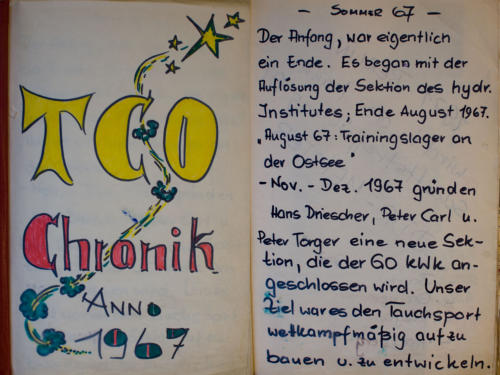 TCO
Chronik
Anno
1967
- SOMMER 67 -
Der Anfang, war eigentlich
ein Ende. Es begann mit der
Auflösung der Sektion des hydr.
Institutes, Ende August 1967.
"August 67: Trainingslager an
der Ostsee"
- Nov. - Dez. 1967 gründen
Hans Driescher, Peter Carl u.
Peter Torger eine neue Sek-
tion, die der GO KWK an-
geschlossen wird. Unser
Ziel war es den Tauchsport
wettkampfmäßig auf zu
bauen u. zu entwickeln.